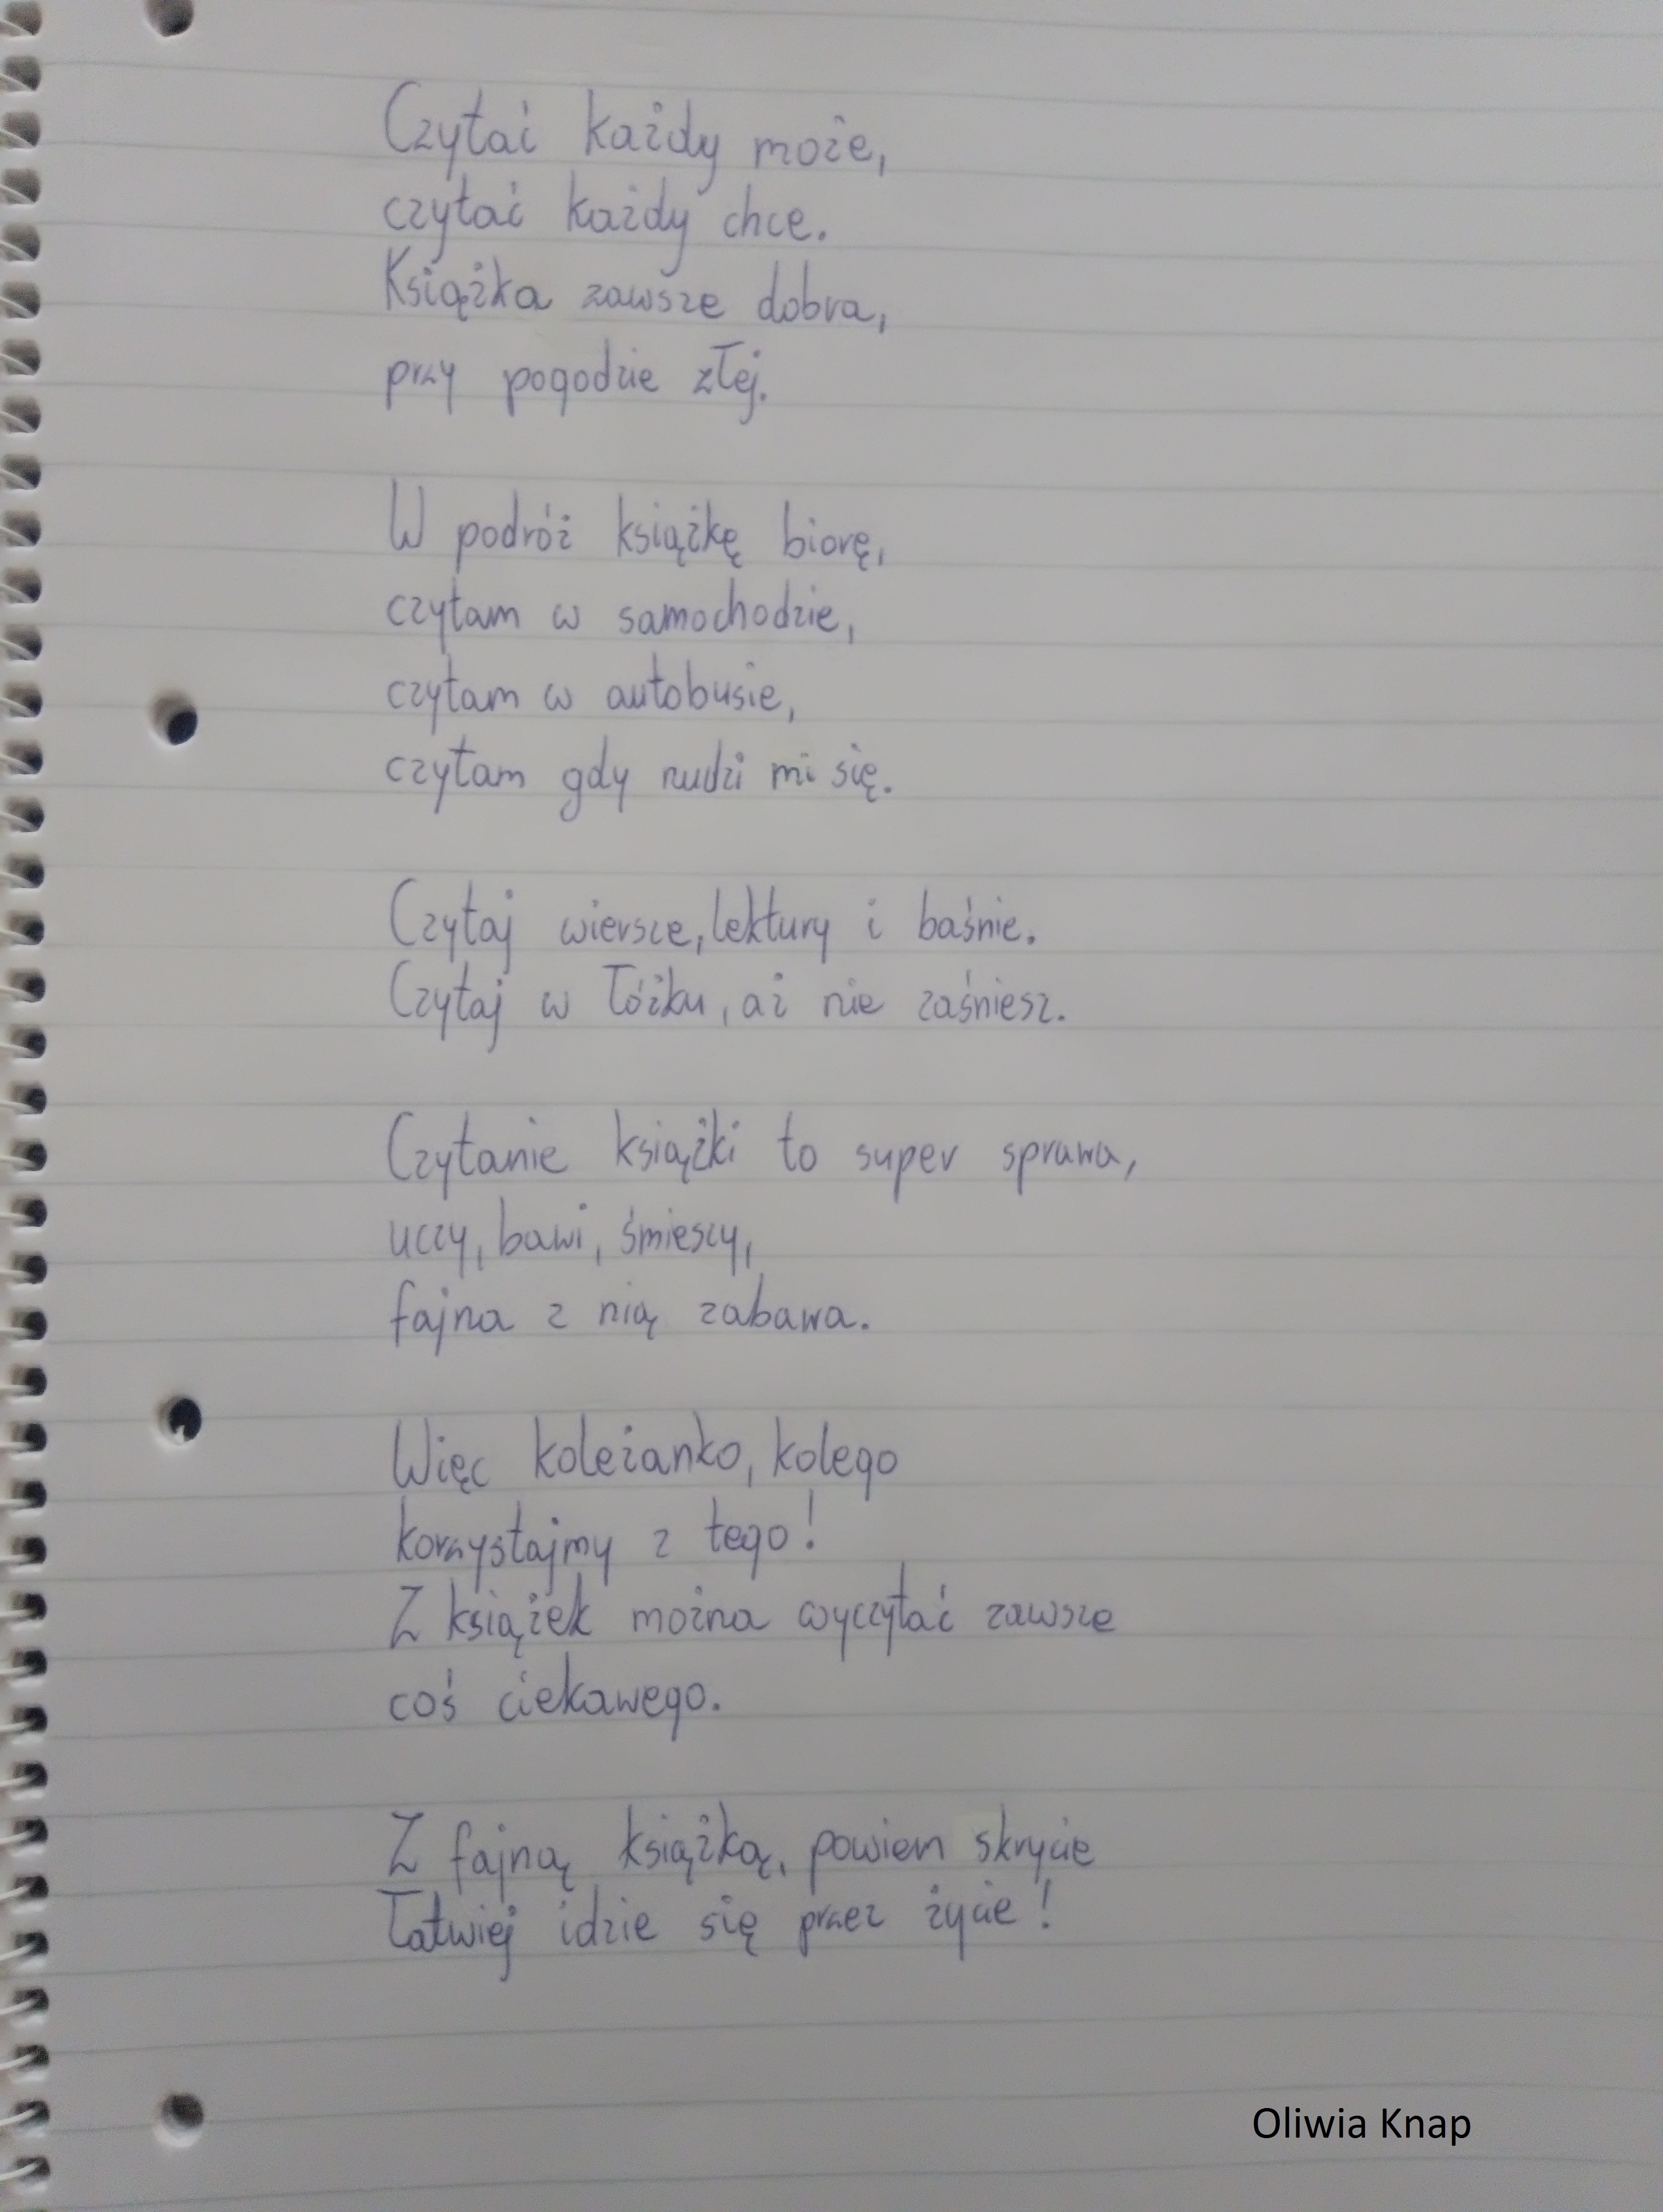 Czytać każdy może,
czytać każdy chce.
Książka zawsze dobra,
przy pogodzie złej.
W podróż książkę biorę,
czytam w samochodzie,
czytam w autobusie,
czytam gdy nudzi mi się.
Czytaj wiersze, lektury i baśnie.
Czytaj w łóżku, aż nie zaśniesz.
Czytanie książki to super sprawa,
uczy, bawi, śmieszy,
fajna z nią zabawa.
Więc koleżanko, kolego
korzystajmy z tego!
Z książek można wyczytać zawsze
coś ciekawego.
Z fajną książką, powiem skrycie
łatwiej idzie się przez życie!
Oliwia Knap